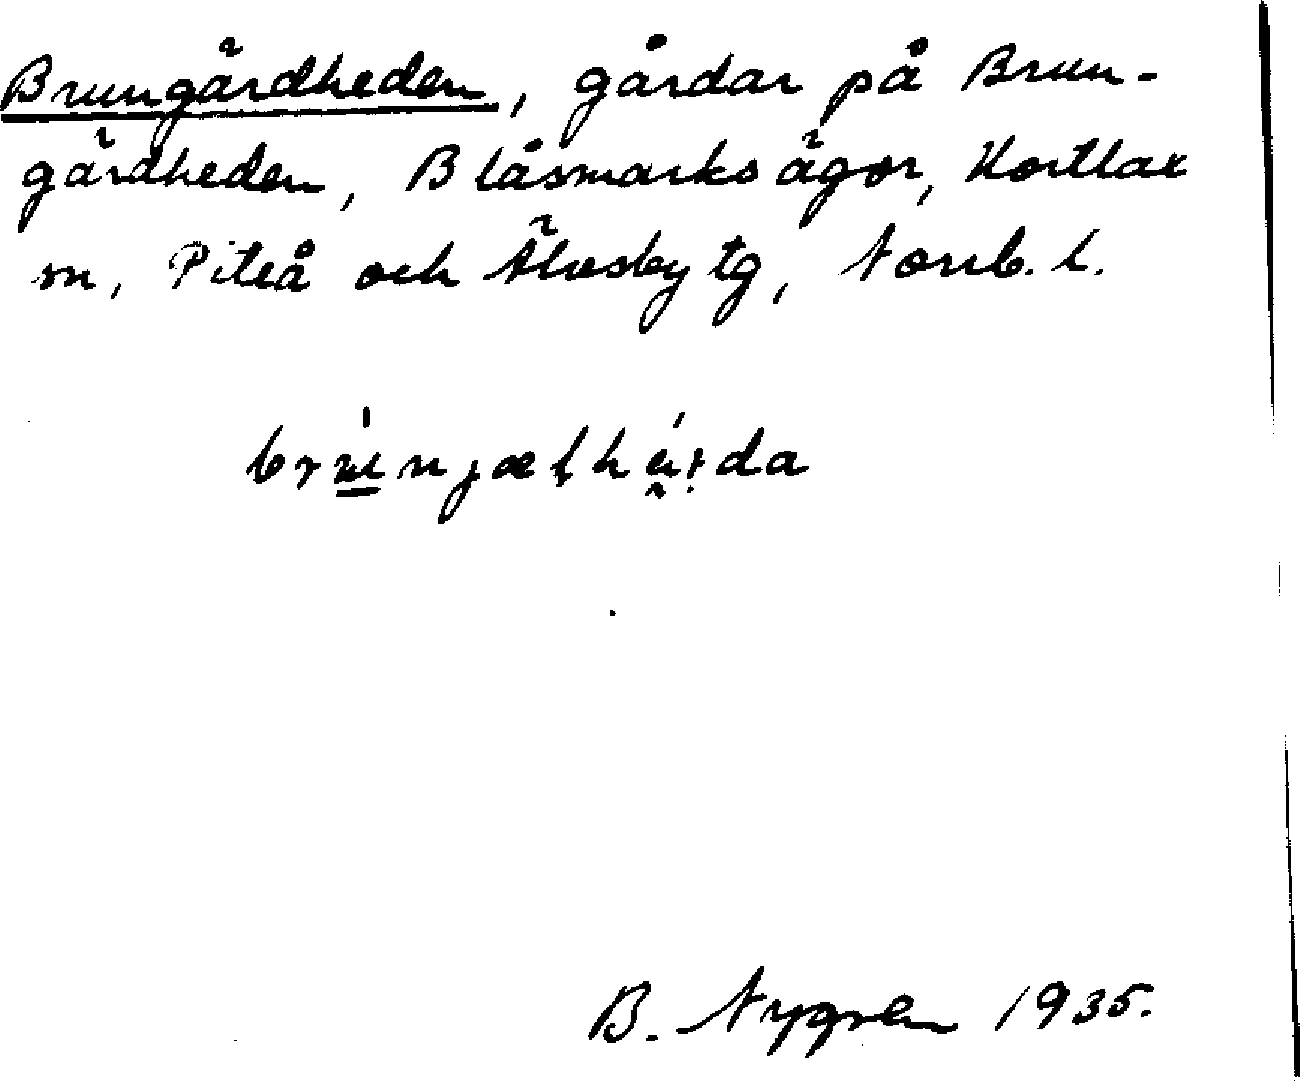 Brungärdheden, gårdar på Brun-
gärdheden, Blåsmarks ägor, Hortlax
sn, Piteå och Älvsby tg, Norrb. l.
B. Nygren 1935.